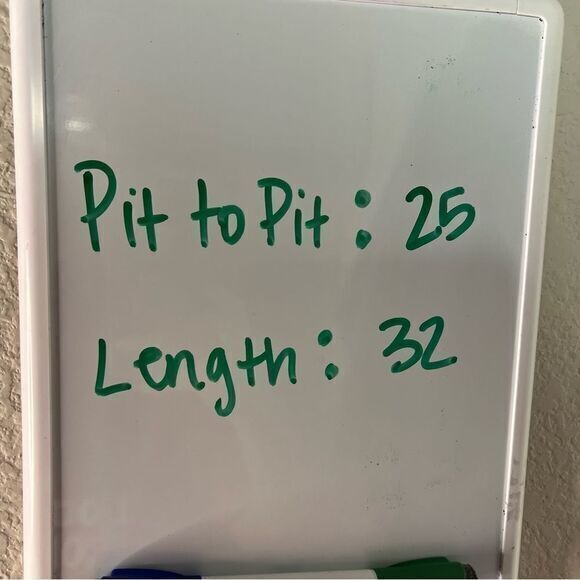 Pit to Pit: 25
Length: 32